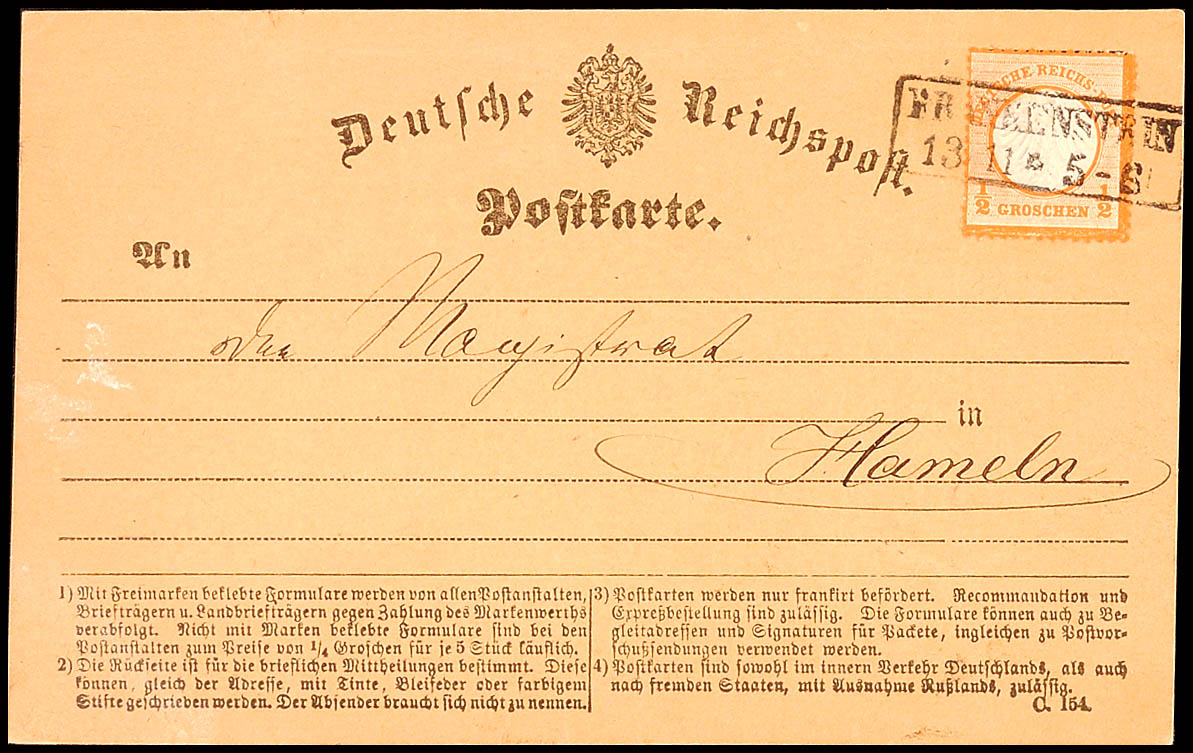 Deutsche Reichspost.
Postkarte.
DEUTSCHE REICHS-POST
FRANKENSTEIN
13 11 5-6
1/2 GROSCHEN 1/2
An
den Magistrat
in
Hameln
1) Mit Freimarken beklebte Formulare werden von allen Postanstalten,
Briefträgern u. Landbriefträgern gegen Zahlung des Markenwerths
verabfolgt. Nicht mit Marken beklebte Formulare sind bei den
Postanstalten zum Preise von 1/4 Groschen für je 5 Stück käuflich.
2) Die Rückseite ist für die brieflichen Mittheilungen bestimmt. Diese
können, gleich der Adresse, mit Tinte, Bleifeder oder farbigem
Stifte geschrieben werden. Der Absender braucht sich nicht zu nennen.
3) Postkarten werden nur frankirt befördert. Recommandation und
Expreßbestellung sind zulässig. Die Formulare können auch zu Be-
gleitadressen und Signaturen für Packete, ingleichen zu Postvor-
schußsendungen verwendet werden.
4) Postkarten sind sowohl im innern Verkehr Deutschlands, als auch
nach fremden Staaten, mit Ausnahme Rußlands, zulässig.
C. 154.